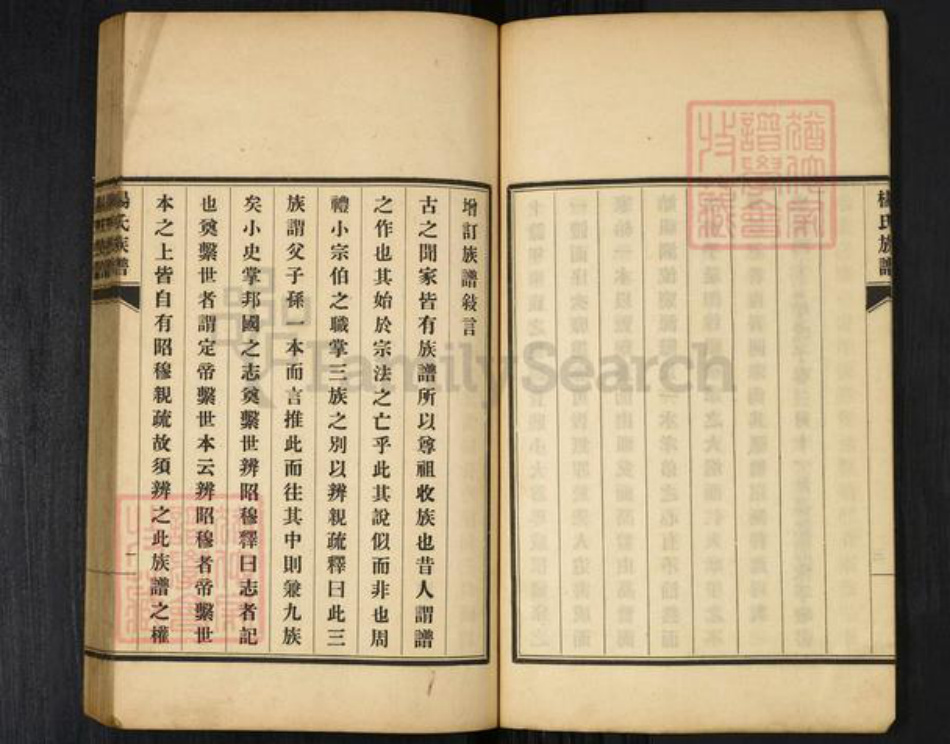 楊氏族譜
增訂族譜敍言
古之聞家皆有族譜所以尊祖收族也昔人謂譜
之作也其始於宗法之亡乎此其說似而非也周
禮小宗伯之職掌三族之別以辨親疏釋曰此三
族謂父子孫一本而言推此而往其中則兼九族
矣小史掌邦國之志奠繫世辨昭穆釋曰志者記
也奠繫世者謂定帝繫世本云辨昭穆者帝繫世
本之上皆自有昭穆親疏故須辨之此族譜之權
楊氏族譜
一
FamilySearch